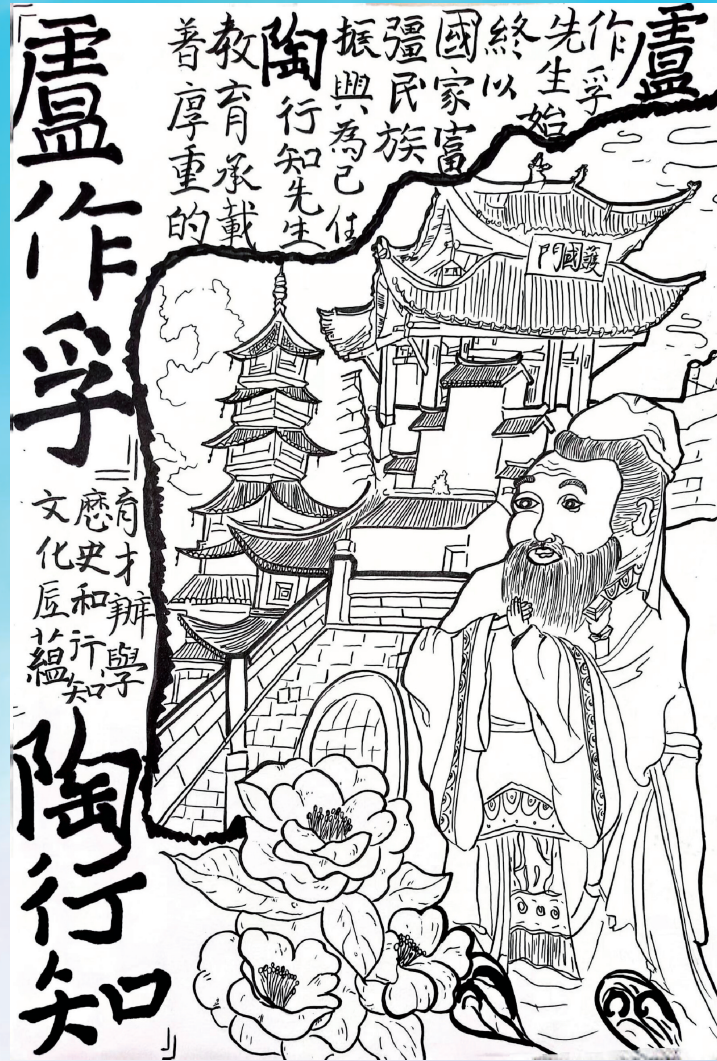 盧
作孚
先生始
終以
國家富
彊民族
振興為己任
陶行知先生
教育承載
着厚重的
『盧作孚』
育才辦學
歷史和行知
文化底蘊
『陶行知』
護國門